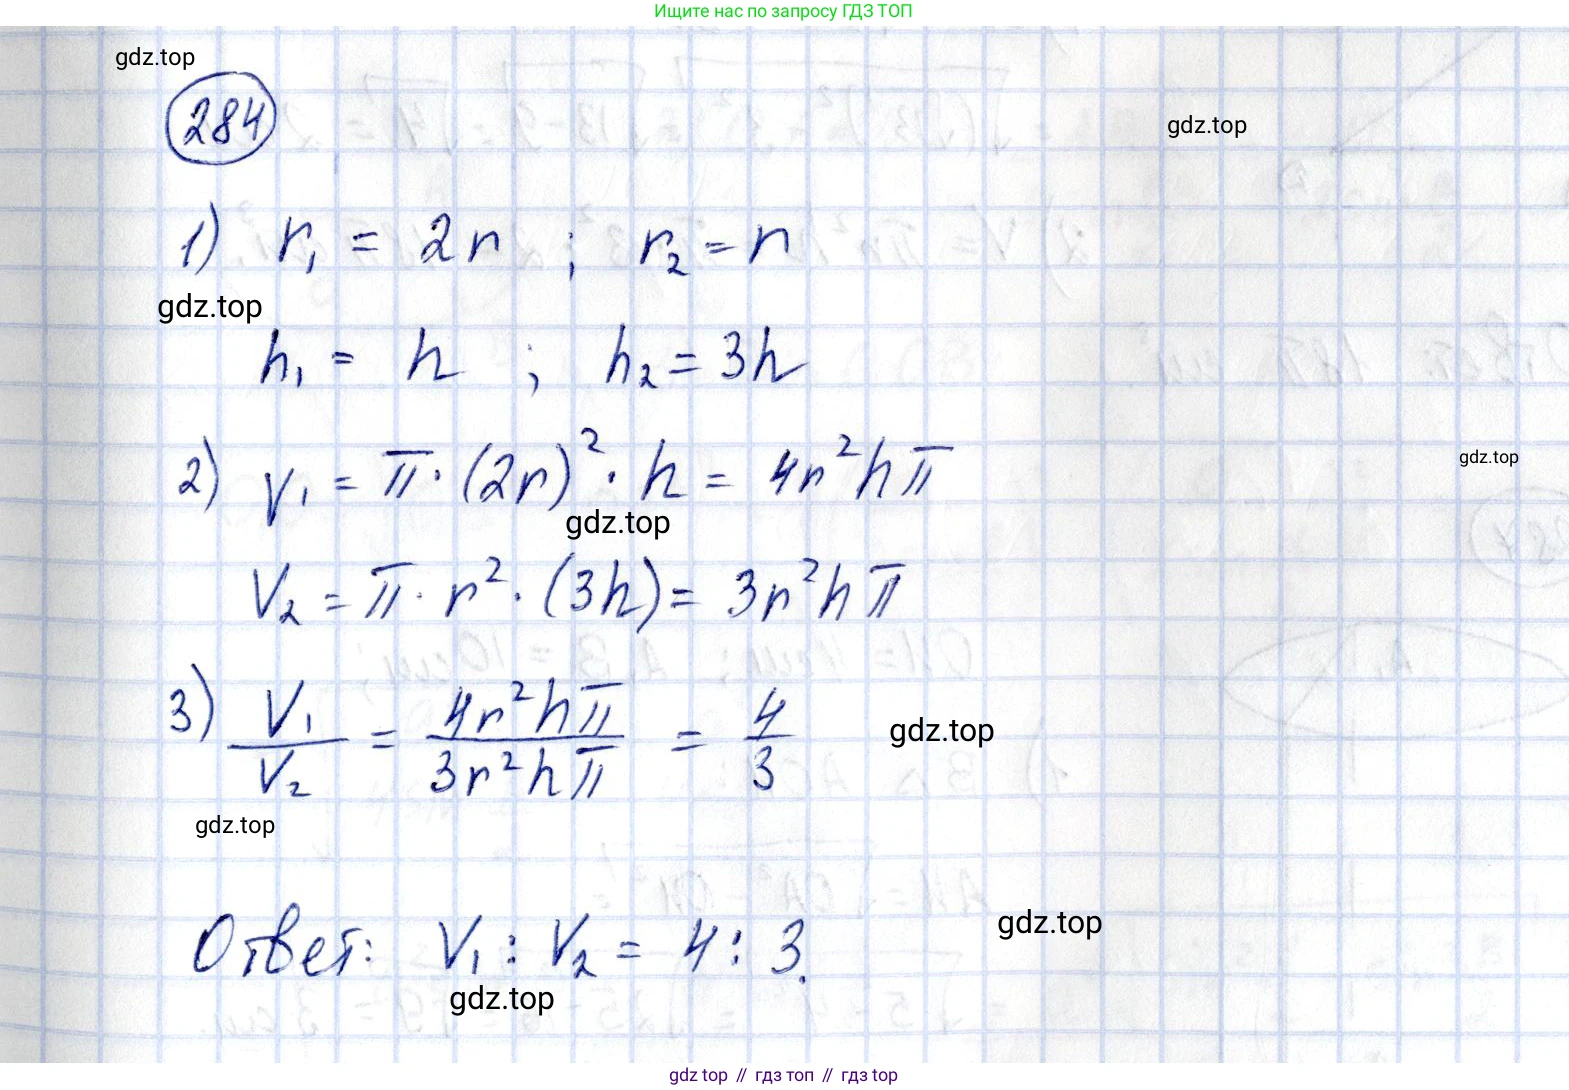 Ищите нас по запросу ГДЗ ТОП
gdz.top
284
gdz.top
1) r₁ = 2r ; r₂ = r
gdz.top
h₁ = h ; h₂ = 3h
2) V₁ = π · (2r)² · h = 4r²hπ
gdz.top
gdz.top
V₂ = π · r² · (3h) = 3r²hπ
3) V₁/V₂ = 4r²hπ/3r²hπ = 4/3
gdz.top
gdz.top
Ответ: V₁ : V₂ = 4 : 3.
gdz.top
gdz.top
gdz top // гдз топ // гдз top